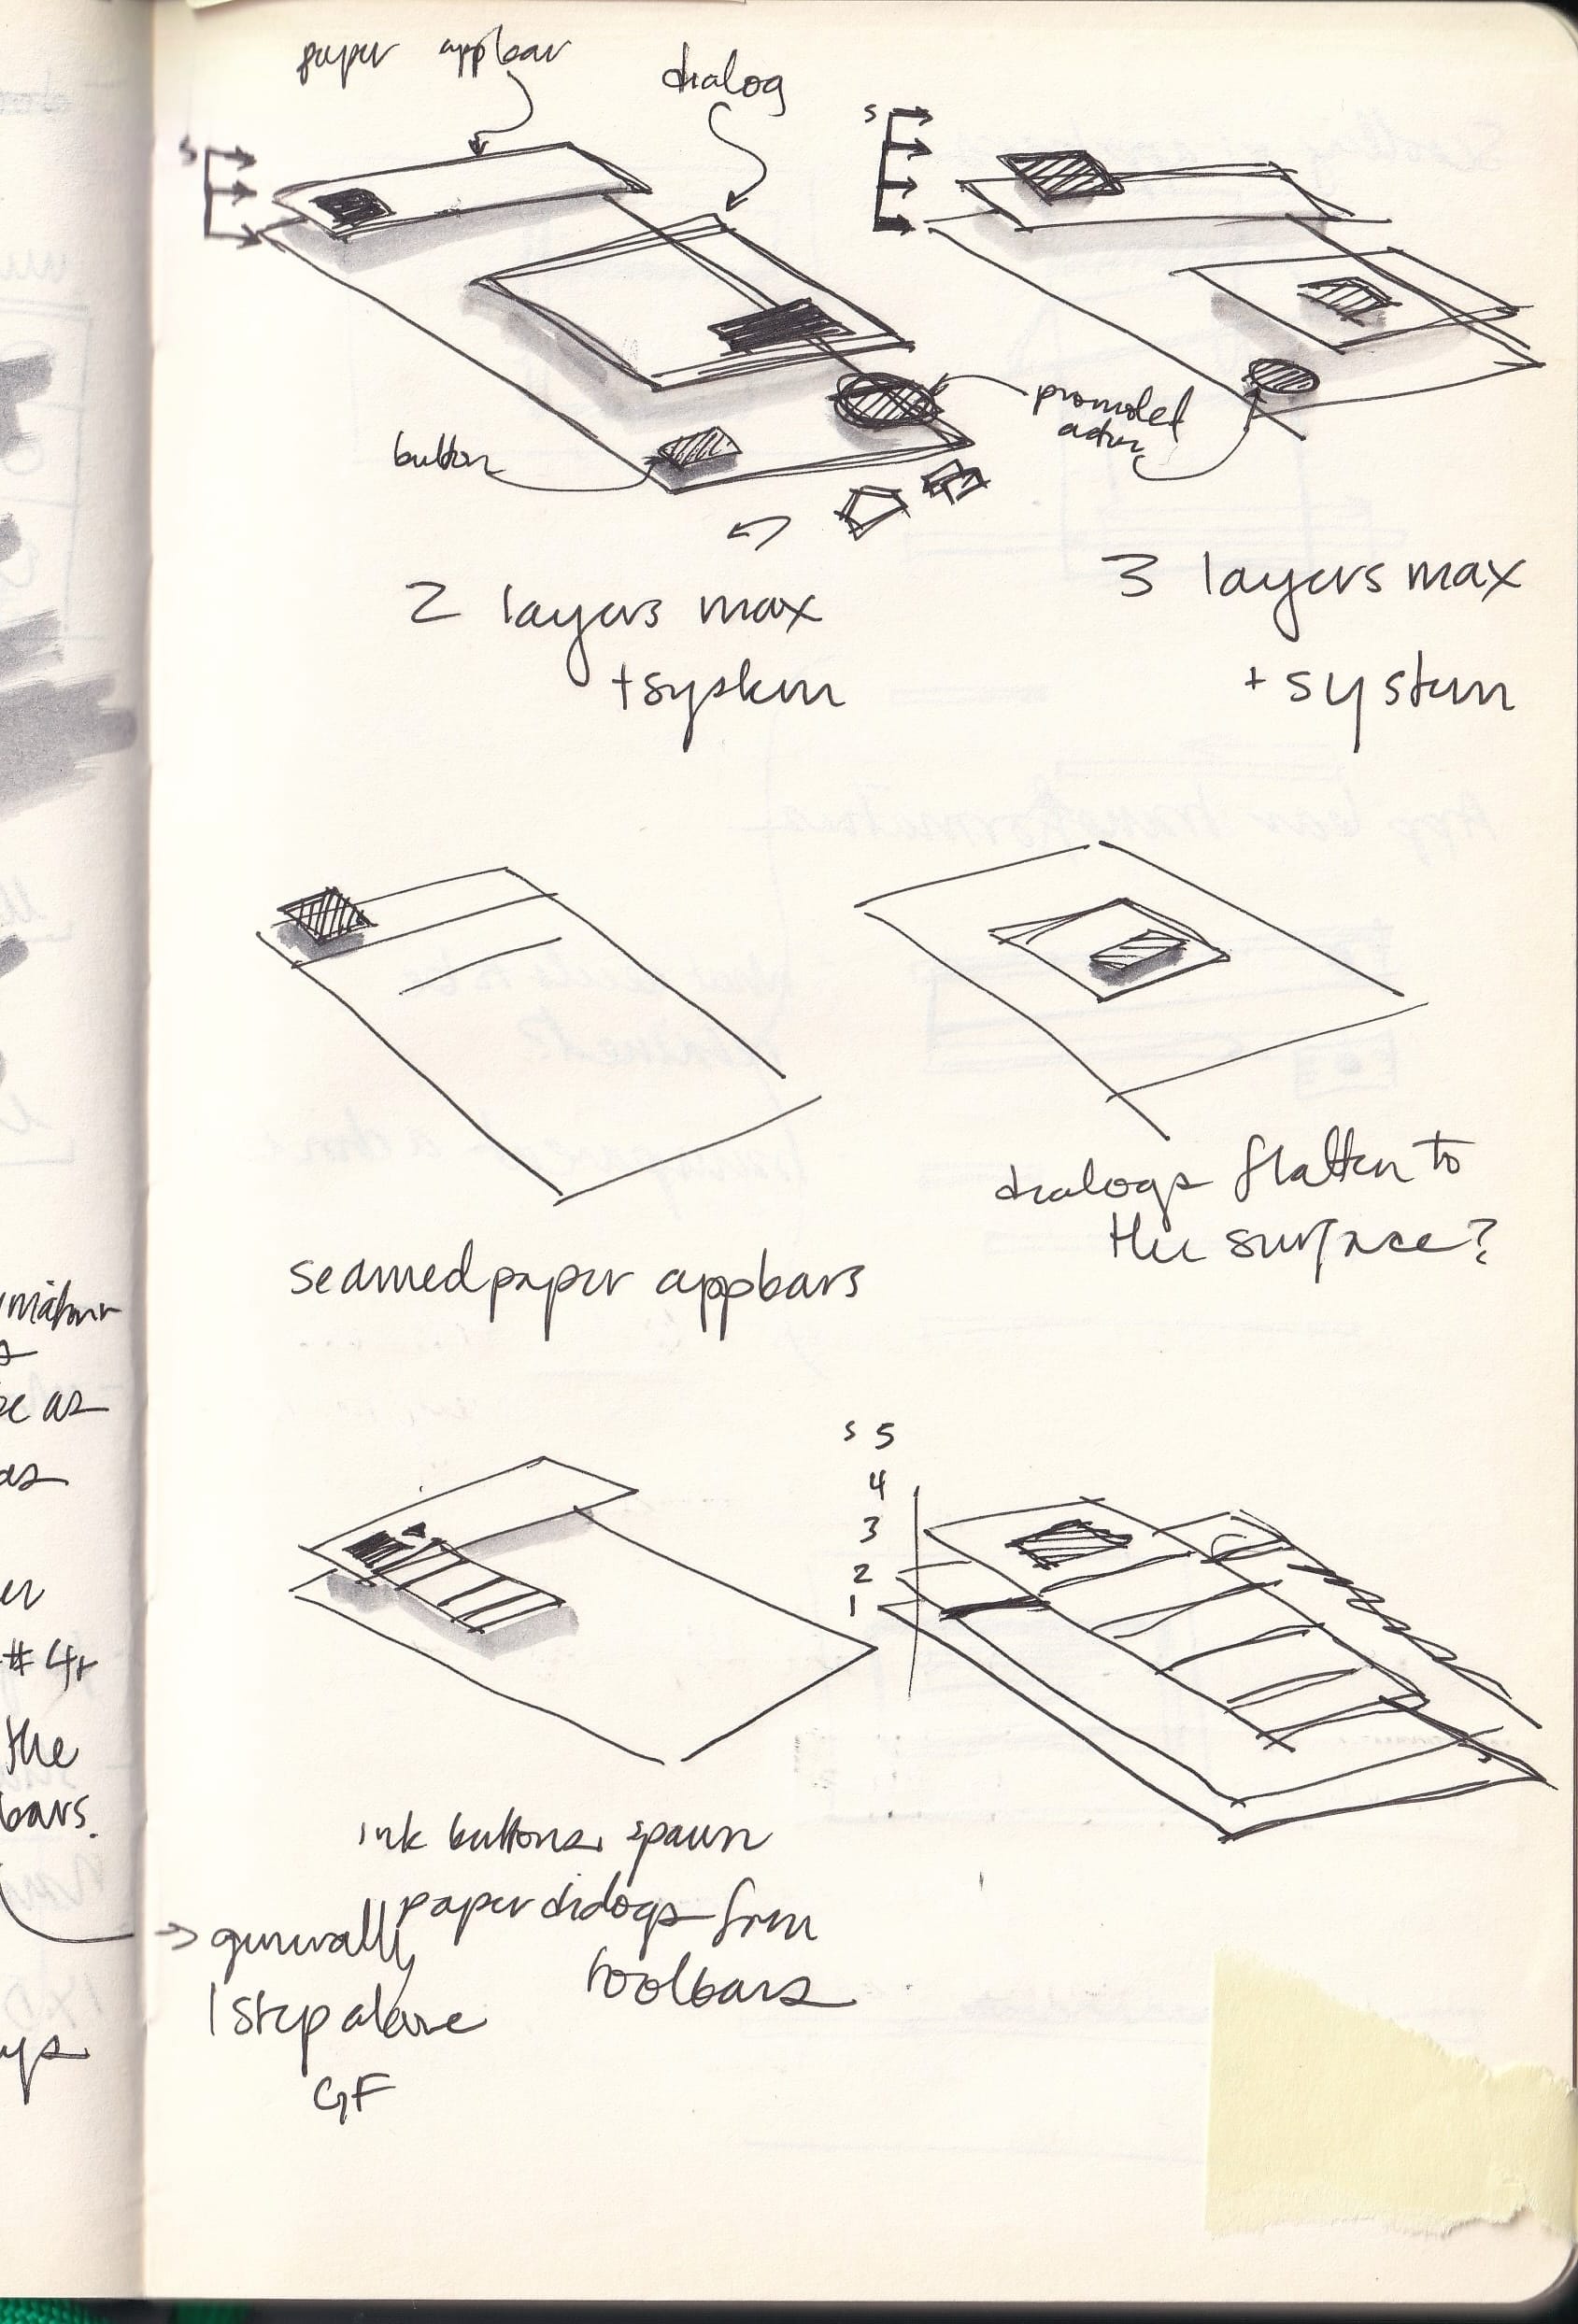 paper appbar
dialog
s
s
button
promoted
action
2 layers max
+ system
3 layers max
+ system
seamed paper appbars
dialogs flatten to
the surface?
s 5
4
3
2
1
ink buttons spawn
paper dialogs from
toolbars
→ generally
1 step above
GF
be as
as
er
#4r
the
bars.